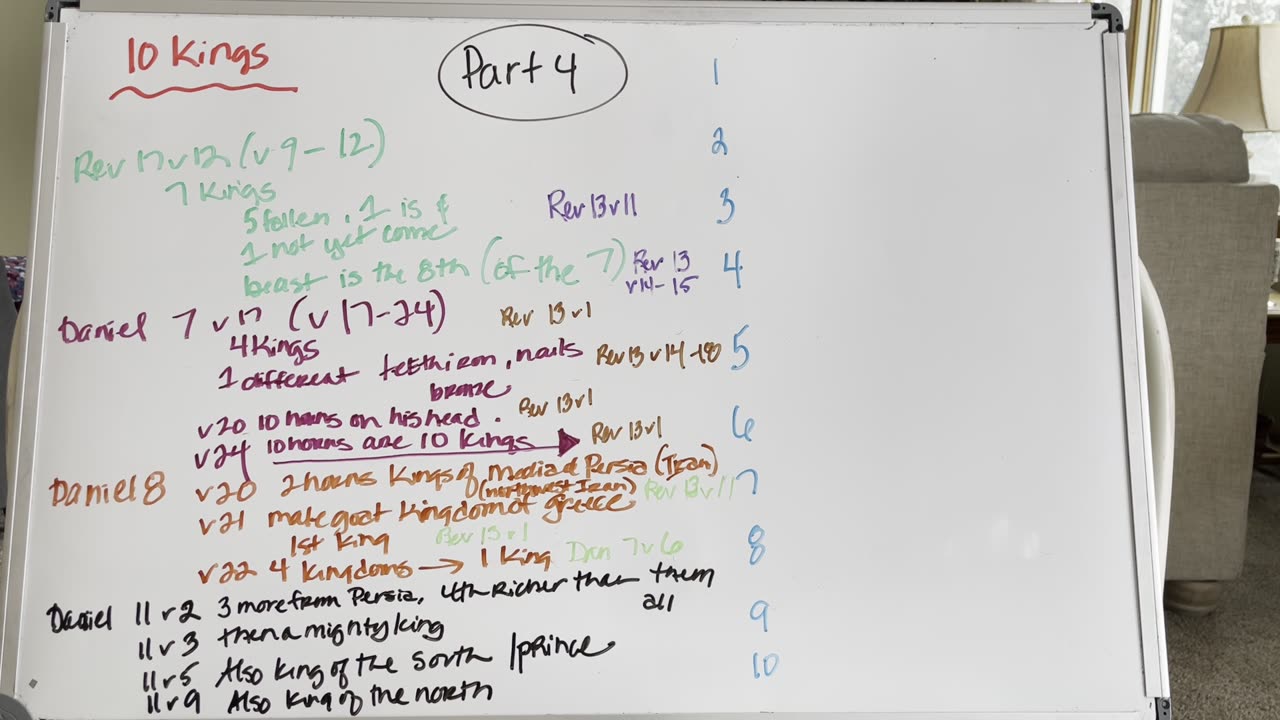 10 Kings
Part 4
Rev 17 v 12 (v 9 - 12)
7 Kings
5 fallen, 1 is &
1 not yet come
beast is the 8th (of the 7)
Rev 13 v 11
Rev 13
v14 - 15
Daniel 7 v 17 (v 17-24)
Rev 13 v 1
4 Kings
1 different teeth iron, nails
bronze
Rev 13 v 14 -18
v20 10 horns on his head.
Rev 13 v 1
v24 10 horns are 10 Kings
Rev 13 v 1
Daniel 8 v20 2 horns Kings of Media & Persia (Iran)
(northwest Iran)
Rev 13 v 11
v21 male goat Kingdom of greece
1st King
Rev 13 v 1
v22 4 Kingdoms → 1 King
Dan 7 v 6
Daniel 11 v 2 3 more from Persia, 4th richer than them
all
11 v 3 then a mighty king
11 v 5 Also king of the south /prince
11 v 9 Also king of the north
1
2
3
4
5
6
7
8
9
10